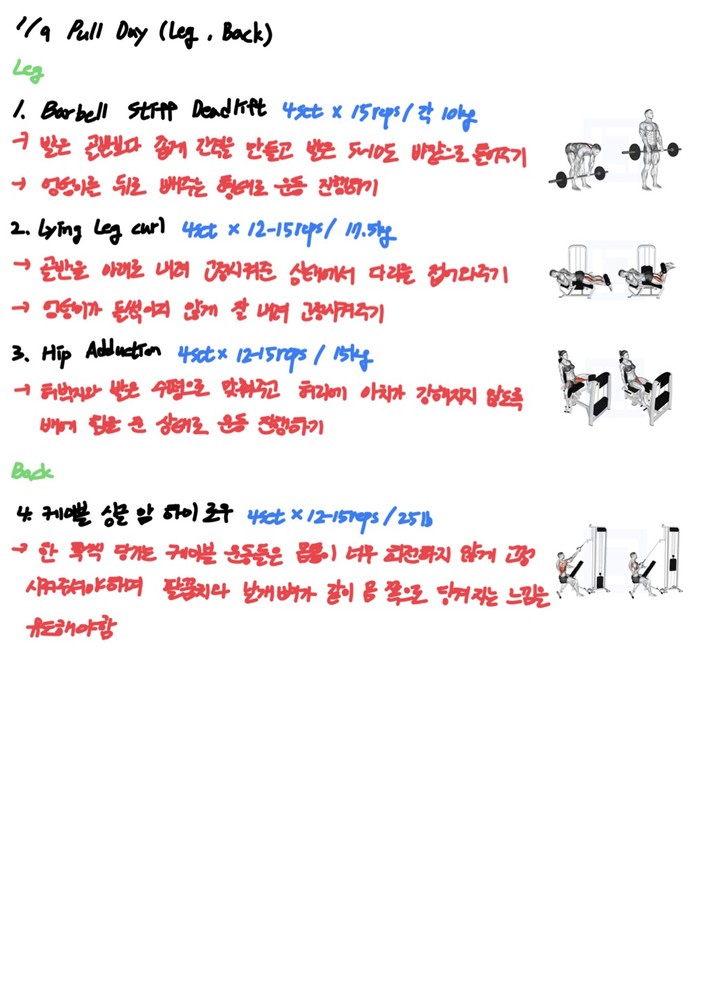 1/9 Pull Day (Leg, Back)
Leg
1. Barbell Stiff Deadlift 4set × 15reps / 각 10kg
→ 발은 골반보다 좁게 간격을 만들고 발은 5~10도 바깥으로 틀어주기
→ 엉덩이는 뒤로 빼주는 형태로 운동 진행하기
2. Lying Leg curl 4set × 12-15reps / 17.5kg
→ 골반을 아래로 내려 고정시켜준 상태에서 다리를 접어와주기
→ 엉덩이가 들썩이지 않게 잘 내려 고정시켜주기
3. Hip Adduction 4set × 12-15reps / 15kg
→ 허벅지와 발은 수평으로 맞춰주고 허리에 아치가 강해지지 않도록
배에 힘을 준 상태로 운동 진행하기
Back
4. 케이블 싱글 암 하이 로우 4set × 12-15reps / 25lb
→ 한 쪽씩 당기는 케이블 운동들은 몸통이 너무 회전하지 않게 고정
시켜주셔야하며 팔꿈치와 날개뼈가 같이 몸 쪽으로 당겨지는 느낌을
유도해야함